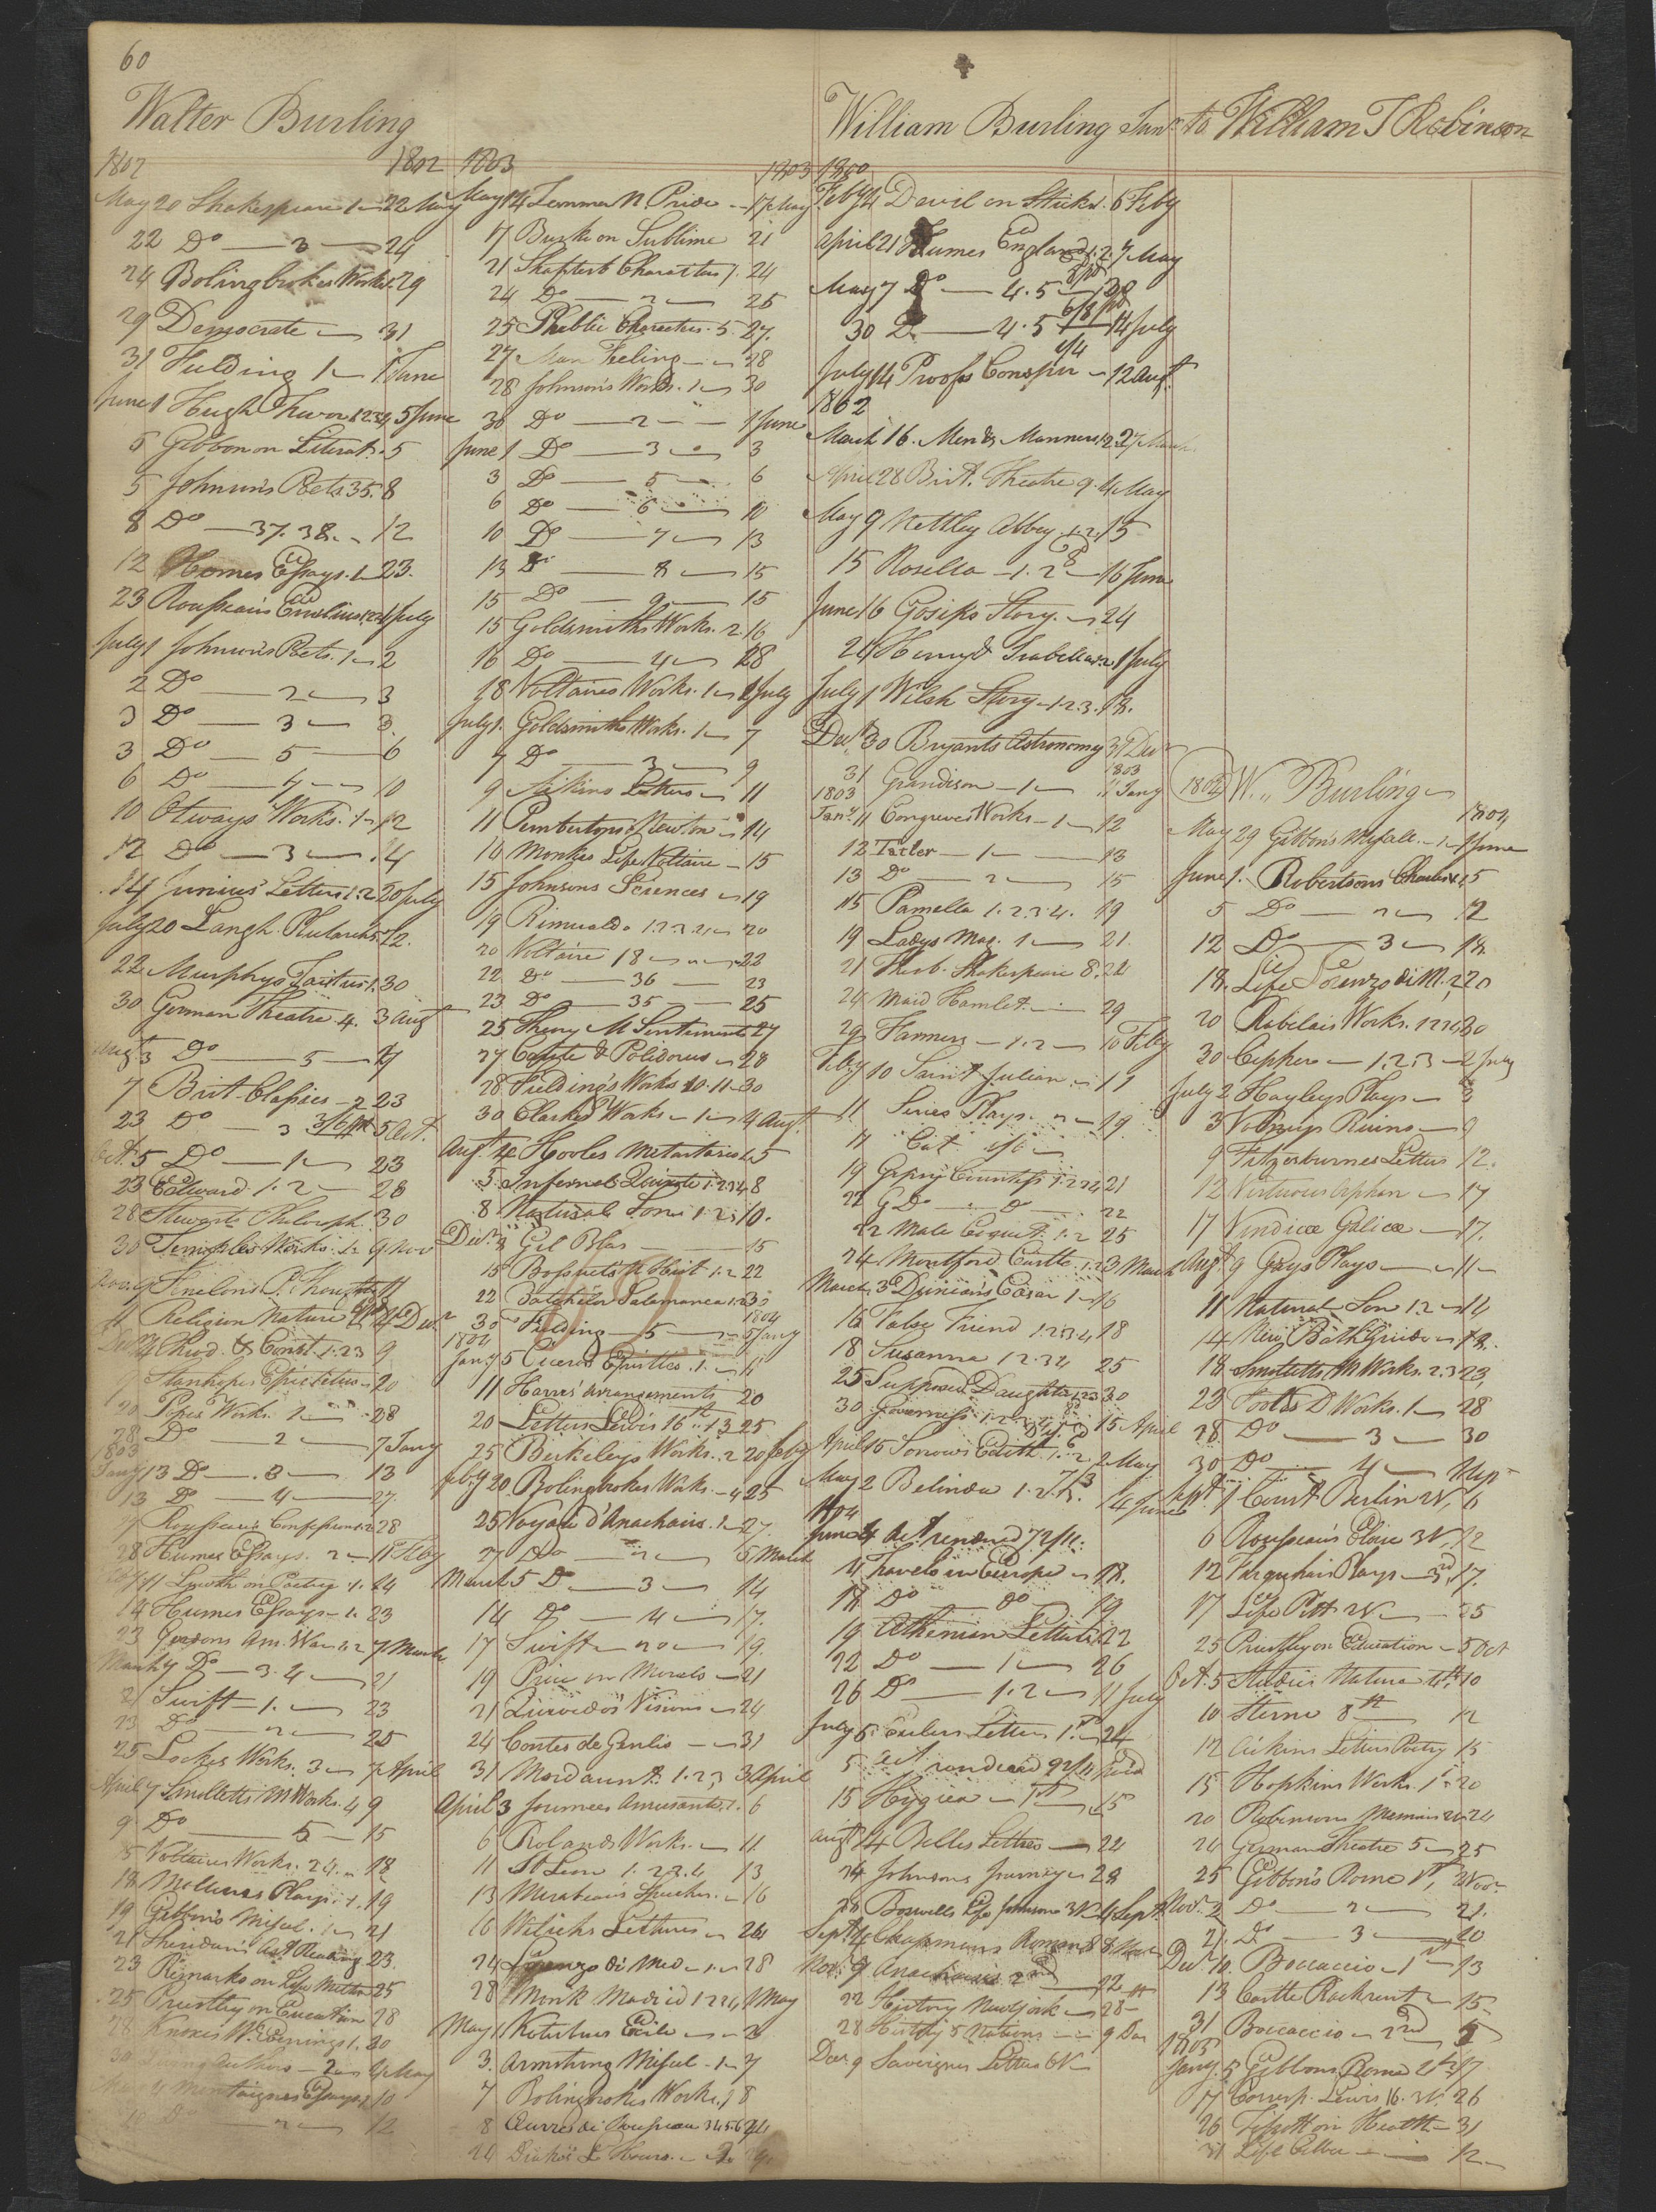 60
Walter Burling
1802 1802
May 20 Shakespeare 1 22 May
22 Do 3 24
24 Bolingbrokes Works 1. 29
29 Democrate 31
31 Fielding 1 1 June
June 1 Hugh Trevor 1.2.3.4 5 June
5 Gibbon on Literat. 5
5 Johnson's Poets 35. 8
8 Do 37. 38. 12
12 Homes Essays. 1 23.
23 Rousseau's Emilius 1.2.3.4 1 July
July 1 Johnson's Poets. 1 2
2 Do 2 3
3 Do 3 3.
3 Do 5 6
6 Do 4 10
10 Otways Works. 1 12
12 Do 3 14
14 Junius' Letters 1.2 20 July
July 20 Langh. Plutarch 5. 22.
22 Murphys Tacitus 1. 30
30 German Theatre 4. 3 Augt
Augt 3 Do 5 7
7 Brit. Classics 2 23
23 Do 3 3/6 pd 5 Oct.
Oct. 5 Do 1 23
23 Edward 1.2 28
28 Stewarts Philosoph. 30
30 Temples Works. 1.2 9 Nov
Nov. 9
11 Religion Nature
9
9 Stanhopes Epictetus 20
20 Popes Works. 1 28
28 Do 2 7 Jany
1803
Jany 13 Do 3 13
13 Do 4 27.
Rousseau's Confessions 1.2 28
28 Humes Essays. 2 11 Feby
11 Lowth on Poetry 1. 14
14 Humes Essays 1. 23
23 Gordons Am. War 1.2 7 March
March 7 Do 3.4 21
21 Swift 1. 23
23 Do 2 25
25 Lockes Works. 3 7 April
April 7 Smolletts M Works. 4 9
9 Do 5 15
15 Voltaires Works. 24. 18
18 Molieres Plays. 1. 19
19 Gibbon's Miscel. 1 21
21 Sheridan's Art Reading 23.
23 Remarks on Life Milton 25
25 Priestley on Education 28
28 Knoxes W. Evenings 1. 30
30 Living Authors 2 4 May
May 4 Montaignes Essays 1 10
10 Do 2 12
1803 1803
May 14 Lemmer N. Price 17 May
17 Burke on Sublime 21
21 Shaftesb. Charactus 1. 24
24 Do 2 25
25 Public Characters. 5. 27.
27 Man Feeling 28
28 Johnson's Works. 1 30
30 Do 2 1 June
June 1 Do 3 3
3 Do 5 6
6 Do 6 10
10 Do 7 13
13 Do 8 15
15 Do 9 15
15 Goldsmiths Works. 2. 16
16 Do 4 28
28 Voltaires Works. 1 1 July
July 1. Goldsmiths Works. 1 7
7 Do 3 9
9 Aikins Letters 11
11 Pembertons Newton 14
14 Monkes Life Voltaire 15
15 Johnsons Sciences 19
19 Rimualdo 1.2.3.4 20
20 Voltaire 18 22
22 Do 36 23
23 Do 35 25
25 Theory M Sentiments 27
27 Castle & Polidorus 28
28 Fielding's Works 10.11 30
30 Clarkes Works 1 4 Augt
Augt 4 Hooles Metastasio 1. 5
5 Infernal Quixote 1.2.3.4 8
8 Natural Son 1.2 10.
Decr 3 Gil Blas 15
15 Bossuets U Hist 1.2 22
22 Batchelor Salamanca 1.2 30
1804
30 Fielding 5 5 Jany
1804
Jany 5 Ciceros Epistles. 1. 11
11 Harris' Arrangements 20
20 Letters Lewis 16th 1.3 25
25 Berkeleys Works. 2 20 Feby
Feby 20 Bolingbrokes Works. 4 25
25 Voyage d'Anacharsis. 1 27.
27 Do 2 5 March
March 5 Do 3 14
14 Do 4 17.
17 Swift 20 19.
19 Price on Morals 21
21 Quivedo's Visions 24
24 Contes de Genlis 31
31 Mordaunt 1.2.3 3 April
April 3 Journees Amusantes. 1. 6
6 Rolands Works. 11
11 St Leon 1.2.3.4 13
13 Mirabeau's Speeches. 16
16 Willichs Lectures 24
24 Lorenzo di Med. 1 28
28 Monk Madrid 1.2.3.4 1 May
May 1 Kotzebues Exile 3
3. Armstrong Miscel. 1 7
7 Bolingbrokes Works. 1 8
8 Œuvres de Rousseau 3.4.5.6
14 Drakes L Hours.
William Burling Junr to William T Robinson
1800
Feby 4 Devil on Sticks. 6 Feby
April 21 Humes England 1.2. 7 May
May 7 Do 4.5 30
30 Do 4.5 14 July
July 14 Proofs Conspir 12 Augt
1802
March 16. Men & Manners 1.2. 27 March
April 28 Brit. Theatre 9. 4 May
May 9 Nettley Abbey 1.2. 15
15 Rosella 1.2 16 June
June 16 Gosips Story. 24
24 Henry & Isabella 1.2. 1 July
July 1 Welsh Story 1.2.3. 18.
Decr 30 Bryants Astronomy 31 Decr
1803
31 Grandison 1 11 Jany
1803
Jany 11 Congreves Works 1 12
12 Tatler 1 13
13 Do 2 15
15 Pamella 1.2.3.4. 19
19 Ladys Mag. 1 21.
21 Theob. Shakespeare 8. 24
24 Maid Hamlet. 29
29 Farmers 1.2 10 Feby
Feby 10 Saint Julian 11
11 Series Plays. 2 19
19 Gipsey Countess 1.2.3.4 21
22 G Do Do 22
22 Male Coquet. 1.2 25
24 Montford Castle 1.2 3 March
March 3 Dunican's Cæsar 1 16
16 False Friend 1.2.3.4 18
18 Susanna 1.2.3.4 25
25 Supposed Daughter 1.2.3 30
30 Governess 1.2.3.4 15 April
April 15 Sorrows Edith 1.2 2 May
May 2 Belinda 1.2. 14 June
1804
June 4 Act rendered 72/11.
11 Travels in Europe 18.
18 Do Do 19
19 Athenian Letters 22
22 Do 1 26
26 Do 1.2 11 July
July 5. Eulers Letters 1st 24
5 act rendered
15 Hygiea 1st 15
Augt 14 Belles Lettres 24
24 Johnsons Journey 28
28 Boswells Life Johnson 3V 4 Sept.
Sept 4 Chapmans Roman
Nov. 9 Anacharsis 2nd 22
22 History New York 28
28 History 5 Nations 9 Dec
Decr 9 Savoignes Letters 6V
1802 W. Burling
1804
May 29 Gibbons Miscell. 1 1 June
June 1. Robertsons Charles 1. 5
5 Do 2 12
12 Do 3 18.
18. Life Lorenzo di M. 1.2 20
20 Rabelais Works. 1.2.3.4 30
30 Cepphero 1.2.3 2 July
July 2 Hayleys Plays 3
3 Volneys Ruins 9
9 Fitzosburnes Letters 12.
12 Virtuous Orphan 17
17 Vindicæ Galicæ 17.
Augt 9 Gays Plays 11
11 Natural Son 1.2 14
14 New Bath Guide 18.
18 Smolletts M Works. 2.3 23
23 Footes D Works. 1 28
28 Do 3 30
30 Do 4 1 Sep
Sept. 1 Court Berlin 2V. 6
6 Rousseau's Eloise 3V. 12
12 Farquhars Plays 3rd 17.
17 Life Pitt 2V 25
25 Priestley on Education 5 Oct
Oct. 5 Studies Nature 4th 10
10 Sterne 8th 12
12 Aikins Letters Poetry 15
15 Hopkins Works. 1st 20
20 Robinsons Memoirs 2V. 24
24 German Theatre 5 25
25 Gibbon's Rome 1st 2 Nov.
Nov. 2 Do 2 21.
21. Do 3 20
Decr 10. Boccaccio 1st 13
13 Castle Rackrent 15
31 Boccaccio 2nd 5
1805
Jany. 5 Gibbons Rome 2d 17
17 Corresp. Lewis 16. 3V. 26
26 Tissott on Health 31
31 Life Cibber 12